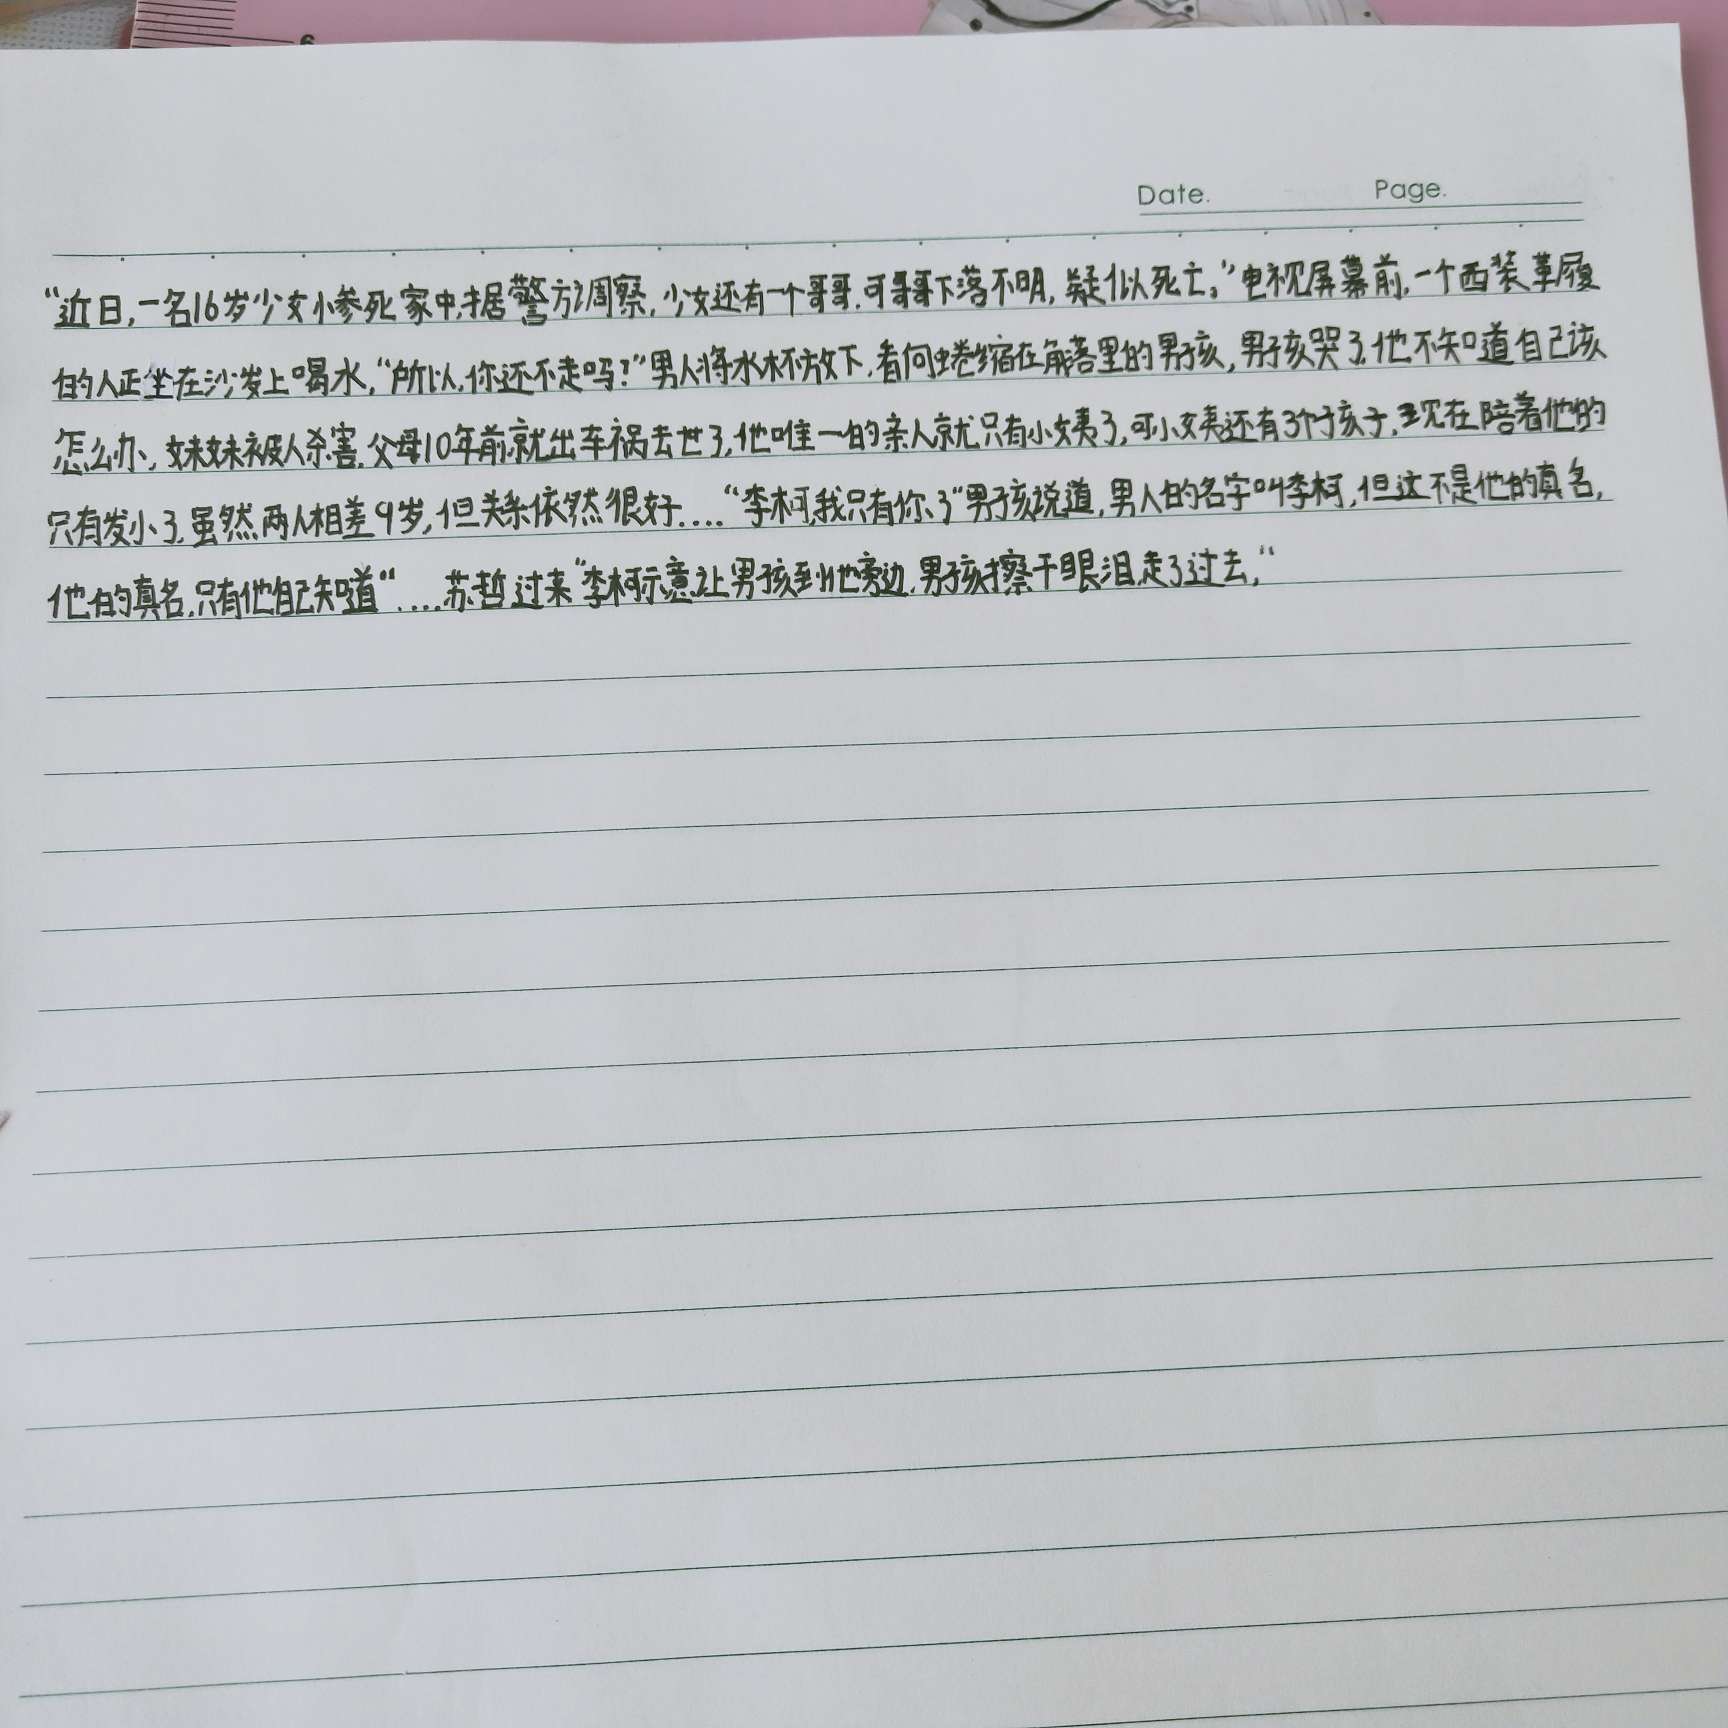 6
Date. Page.
“近日,一名16岁少女小惨死家中,据警方调察,少女还有一个哥哥,可哥哥下落不明,疑似死亡。”电视屏幕前,一个西装革履
的人正坐在沙发上喝水,“所以,你还不走吗?”男人将水杯放下,看向蜷缩在角落里的男孩,男孩哭了,他不知道自己该
怎么办,妹妹被人杀害,父母10年前就出车祸去世了,他唯一的亲人就只有小姨了,可小姨还有3个孩子,现在陪着他的
只有发小了,虽然两人相差9岁,但关系依然很好....“李柯,我只有你了”男孩说道,男人的名字叫李柯,但这不是他的真名,
他的真名,只有他自己知道“....苏哲过来“李柯示意让男孩到他旁边,男孩擦干眼泪,走了过去,“